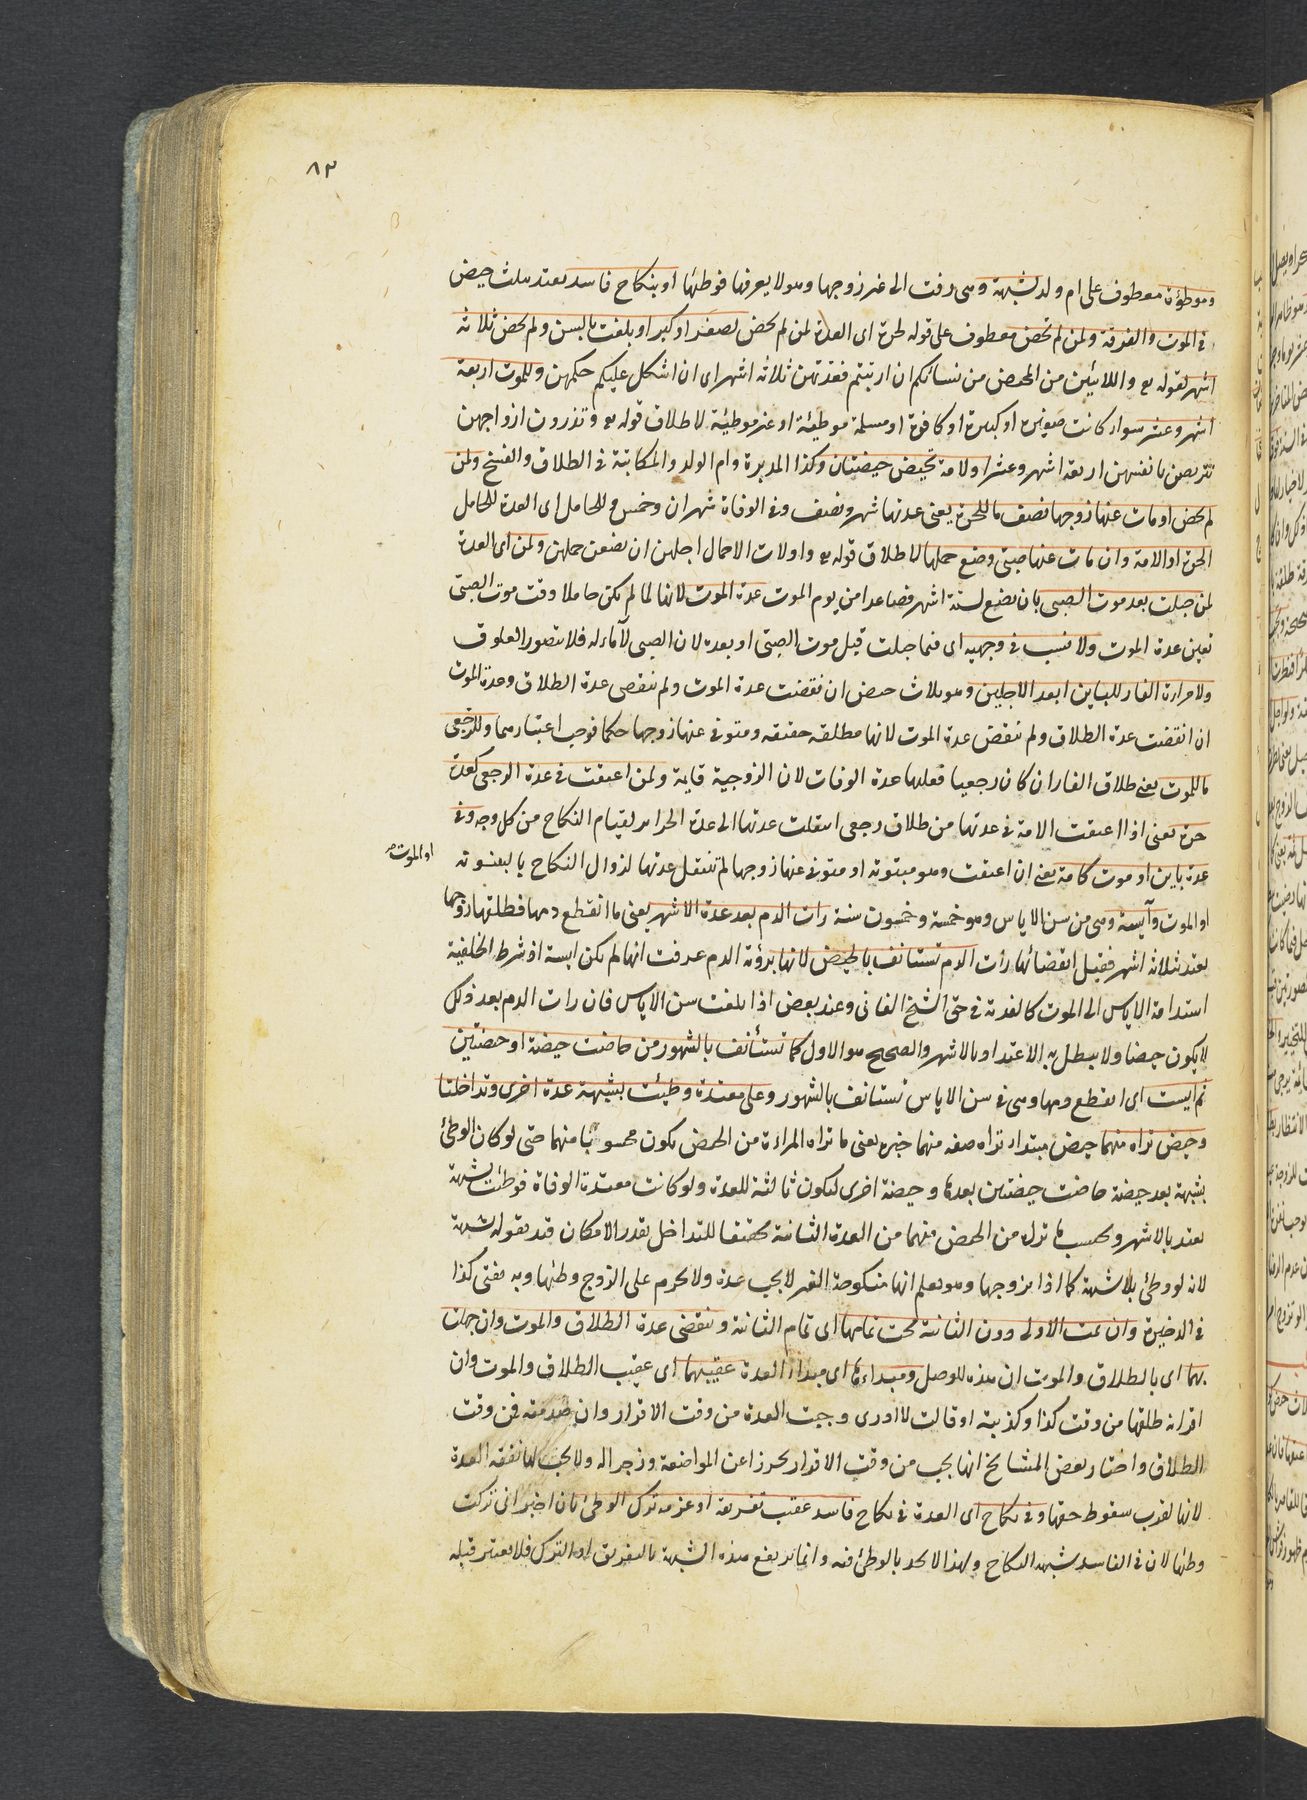 ٨٣
وموطؤة معطوف على ام ولد بشبهة وهى زفت الى غير زوجها وهو لا يعرفها فوطئها او بنكاح فاسد يعتد بثلث حيض
فى الموت والفرقة ولمن لم تحض معطوف على قوله لحرة اى العدة لمن لم تحض لصغر او كبر او بلغت بالسن ولم تحض ثلاثة
اشهر لقوله تع واللائى يئسن من المحيض من نسائكم ان ارتبتم فعدتهن ثلاثة اشهر اى ان اشكل عليكم حكمهن وللموت اربعة
اشهر وعشر سواء كانت صغيرة او كبيرة او كافرة او مسلمة موطيئة او غير موطيئة لاطلاق قوله تع وتذرون ازواجهن
تتربصن بانفسهن اربعة اشهر وعشرا ولامة تحيض حيضتان وكذا المدبرة وام الولد والمكاتبة فى الطلاق والفسخ ولمن
لم تحض او مات عنها زوجها نصف ما للحرة يعنى عدتها شهر ونصف وفى الوفاة شهران وخمس وللحامل اى العدة للحامل
الحرة او الامة وان مات عنها صبى وضع حملها لاطلاق قوله تع واولات الاحمال اجلهن ان يضعن حملهن ولمن اى العدة
لمن حبلت بعد موت الصبى بان تضع لستة اشهر فصاعدا من يوم الموت عدة الموت لانها لما لم تكن حاملا وقت موت الصبى
تعين عدة الموت ولا نسب فى وجهيه اى فيما حبلت قبل موت الصبى او بعده لان الصبى لا ماء له فلا يتصور العلوق
ولامراءة الفار للباين ابعد الاجلين وهو ثلاث حيض ان نقضت عدة الموت ولم تنقض عدة الطلاق وعدة الموت
ان انقضت عدة الطلاق ولم تنقض عدة الموت لانها مطلقة حقيقة ومتوفى عنها زوجها حكما فوجب اعتبارهما وللرجعى
ما للموت يعنى طلاق الفار ان كان رجعيا فعليها عدة الوفات لان الزوجية قاية ولمن اعتقت فى عدة الرجعى كعدة
حرة يعنى اذا اعتقت الامة فى عدتها من طلاق رجعى انتقلت عدتها الى عدة الحراير لقيام النكاح من كل وجه وفى
عدة باين او موت كامة يعنى ان اعتقت وهو مبتوتة او متوفى عنها زوجها لم تنتقل عدتها لزوال النكاح بالبينونة
او الموت
او الموت وآيسة وهى من سن الاياس وهو خمسة وخمسون سنة رات الدم بعد عدة الاشهر يعنى ما انقطع دمها فطلقها زوجها
يعتد ثلاثة اشهر فقبل انقضائها رأت الدم تستانف بالحيض لانها برؤية الدم عرفت انها لم تكن ايسة اذ شرط الخلفية
استدامة الاياس الى الموت كالفدية فى حق الشيخ الفانى وعند بعض اذا بلغت سن الاياس فان رات الدم بعد ذلك
لا يكون حيضا ولا يبطل به الاعتداد بالاشهر والصحيح هو الاول كما تستأنف بالشهور من حاضت حيضة او حيضتين
ثم ايست اى انقطع دمها وهى فى سن الاياس تستانف بالشهور وعلى معتدة وطيئت بشبهة عدة اخرى وتداخلتا
وحيض تراه منهما حيض مبتداء تراه صفة منهما خبره يعنى ما تراه المراءة من الحيض يكون محسوبا منهما حتى لو كان الوطئ
بشبهة بعد حيضة حاضت حيضتين بعدها وحيضة اخرى ليكون ثالثة للعدة ولو كانت معتدة الوفاة فوطئت بشبهة
يعتد بالاشهر ويحتسب ما تراه من الحيض منهما من العدة الثانية تحقيقا للتداخل بقدر الامكان قيد بقوله بشبهة
لانه لو وطئ بلا شبهة كما اذا تزوجها وهو يعلم انها منكوحة الغير لا يجب عدة ولا يحرم على الزوج وطئها وبه يفتى كذا
فى الذخيرة وان تمت الاولى دون الثانية تجب تمامها اى تمام الثانية وتنقضى عدة الطلاق والموت وان جهلت
بهما اى بالطلاق والموت ان هذه للوصل ومبداءها اى مبداء العدة عقيبهما اى عقيب الطلاق والموت وان
اقر انه طلقها من وقت كذا وكذبته او قالت لا ادرى وجبت العدة من وقت الاقرار وان صدقته فمن وقت
الطلاق واختار بعض المشايخ انها تجب من وقت الاقرار تحرزا عن المواضعة وزجرا له ولا يجب لها نفقة العدة
لانها تعرب سقوط حقها وفى نكاح اى العدة فى نكاح فاسد عقيب تفريقه او عزمه ترك الوطئ بان اخبر انى تركت
وطئها لان فى الفاسد شبهة النكاح ولهذا لا يحد بالوطئ فيه وانما يرتفع هذه الشبهة بالتفريق او الترك فلا يعتبر قبله